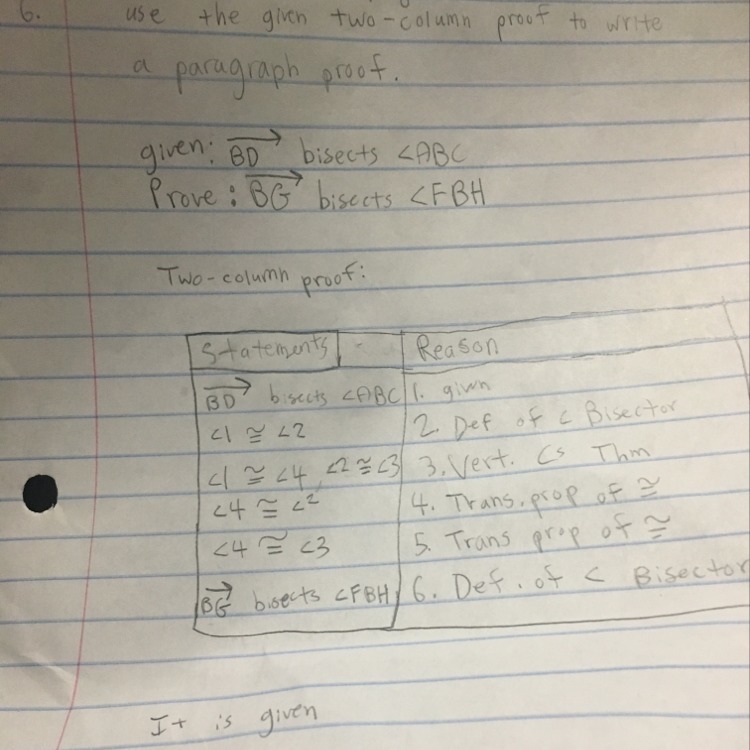 6. use the given two-column proof to write
a paragraph proof.
given: BD bisects <ABC
Prove: BG bisects <FBH
Two-column proof:
Statements Reason
BD bisects <ABC 1. given
<1 ≅ <2 2. Def of < Bisector
<1 ≅ <4, <2 ≅ <3 3. Vert. <s Thm
<4 ≅ <2 4. Trans. prop of ≅
<4 ≅ <3 5. Trans prop of ≅
BG bisects <FBH 6. Def. of < Bisector
It is given